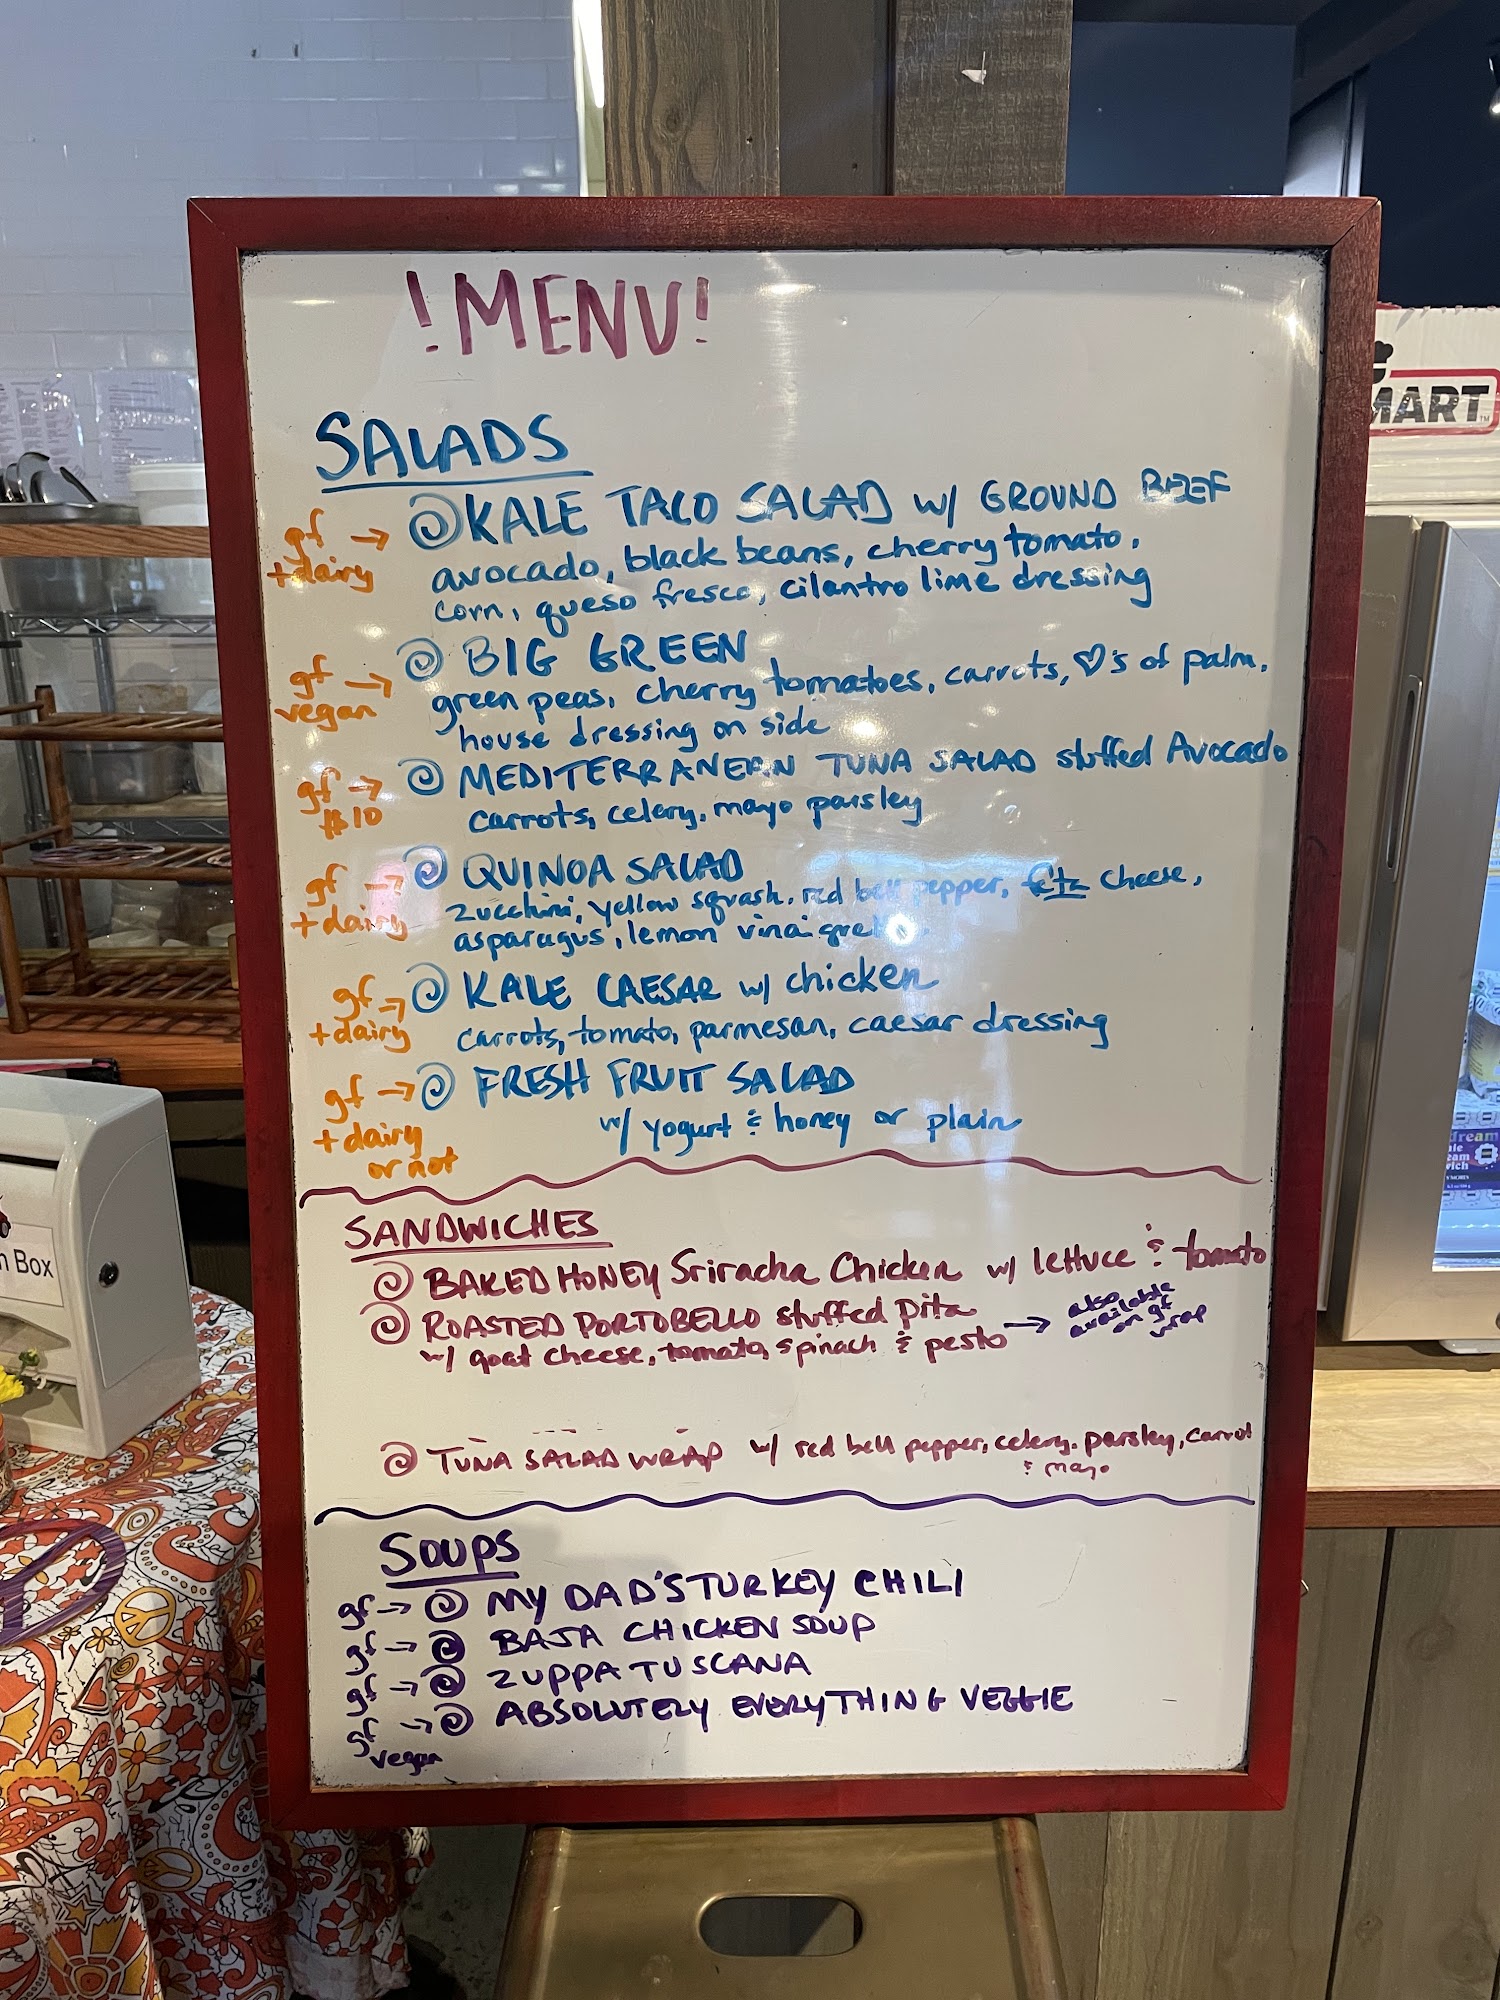 !MENU!
SALADS
gf → KALE TACO SALAD w/ GROUND BEEF
+dairy avocado, black beans, cherry tomato,
corn, queso fresco, cilantro lime dressing
gf → BIG GREEN
vegan green peas, cherry tomatoes, carrots, ♡'s of palm,
house dressing on side
gf → MEDITERRANEAN TUNA SALAD stuffed Avocado
$10 carrots, celery, mayo parsley
gf → QUINOA SALAD
+dairy zucchini, yellow squash, red bell pepper, feta cheese,
asparagus, lemon vinaigrette
gf → KALE CAESAR w/ chicken
+dairy carrots, tomato, parmesan, caesar dressing
gf → FRESH FRUIT SALAD
+dairy w/ yogurt & honey or plain
or not
SANDWICHES
BAKED HONEY Sriracha Chicken w/ lettuce & tomato
ROASTED PORTOBELLO stuffed pita
w/ goat cheese, tomato, spinach & pesto → also
available
on gf
wrap
TUNA SALAD WRAP w/ red bell pepper, celery, parsley, carrot
& mayo
SOUPS
gf → MY DAD'S TURKEY CHILI
gf → BAJA CHICKEN SOUP
gf → ZUPPA TUSCANA
gf → ABSOLUTELY EVERYTHING VEGGIE
vegan
MART
Box